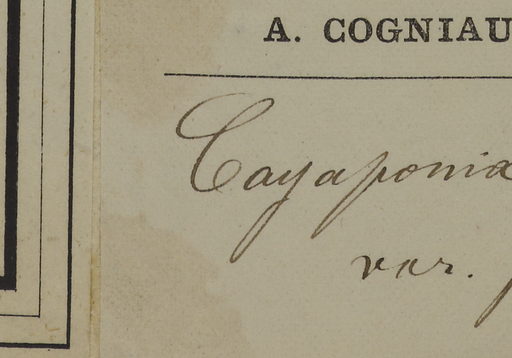 A. COGNIAU
Cayaponia
var.